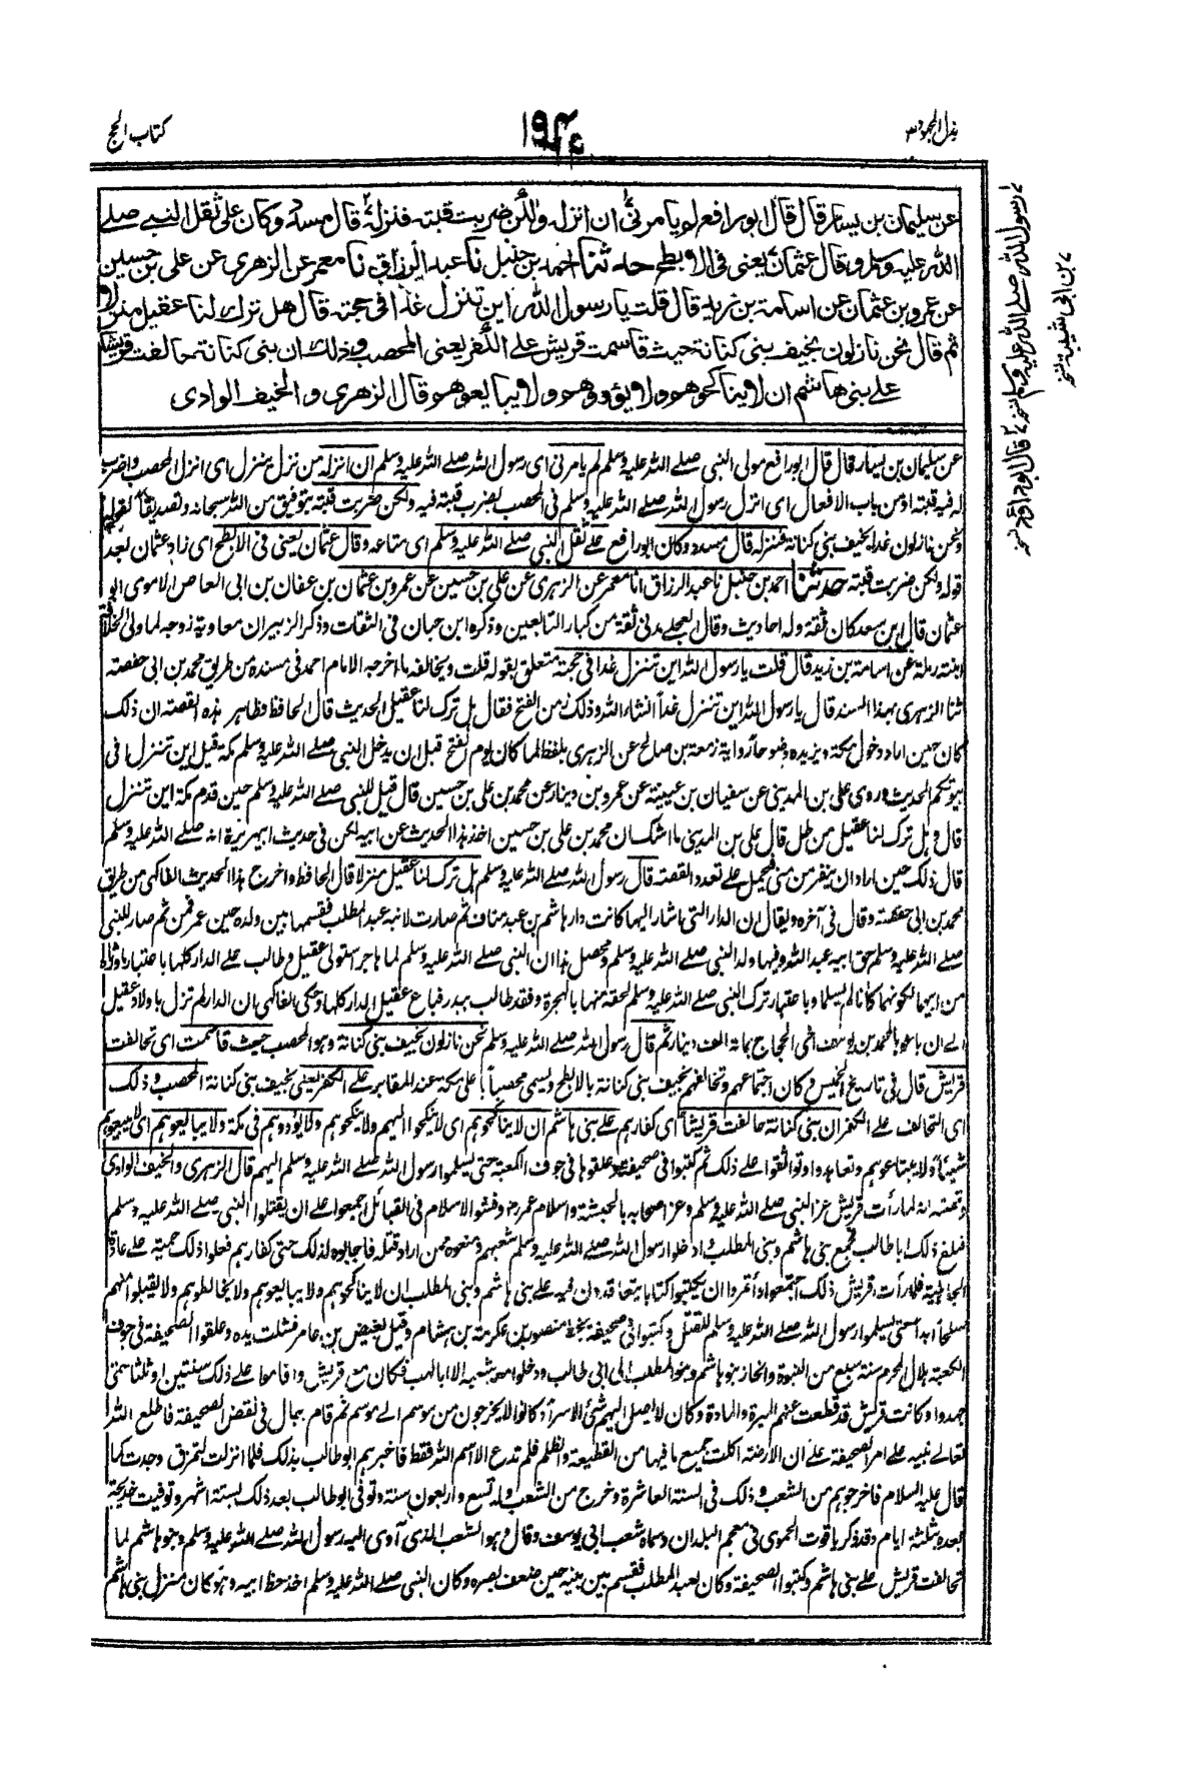 بذل المجهود ٣
١٩٣
كتاب الحج
عن سليمان بن يسار قال قال ابو رافع لم يامرني ان انزله ولكن ضربت قبته فنزله قال مسدد وكان على ثقل النبي صلے
الله عليه وسلم وقال عثمان يعني في الابطح حدثنا احمد بن حنبل نا عبد الرزاق نا معمر عن الزهري عن علي بن حسين
عن عمرو بن عثمان عن اسامة بن زيد قال قلت يا رسول الله اين تنزل غدا في حجته قال هل ترك لنا عقيل منزلا
ثم قال نحن نازلون بخيف بني كنانة حيث قاسمت قريش على الكفر يعني المحصب وذلك ان بني كنانة حالفت قريشا
على بني هاشم ان لا يناكحوهم ولا يؤووهم ولا يبايعوهم قال الزهري والخيف الوادي
عن سليمان بن يسار قال قال ابو رافع مولى النبي صلے الله عليه وسلم لم يامرني اي رسول الله صلے الله عليه وسلم ان انزله من نزل ينزل اي انزل المحصب واضرب
له فيه قبته او من باب الافعال اي انزل رسول الله صلے الله عليه وسلم في المحصب بضرب قبته فيه ولكن ضربت قبته بتوفيق من الله سبحانه وتصديقا لقوله
ونحن نازلون غدا بخيف بني كنانة فنزله قال مسدد وكان ابو رافع على ثقل النبي صلے الله عليه وسلم اي متاعه وقال عثمان يعني في الابطح اي زاد عثمان بعد
قوله ولكن ضربت قبته حدثنا احمد بن حنبل نا عبد الرزاق انا معمر عن الزهري عن علي بن حسين عن عمرو بن عثمان بن عفان بن ابي العاص الاموي ابو
عثمان قال ابن سعد كان ثقة وله احاديث وقال العجلي مدني ثقة من كبار التابعين وذكره ابن حبان في الثقات وذكر الزبير ان معاوية زوجه لما ولي الخلافة
ابنته رملة عن اسامة بن زيد قال قلت يا رسول الله اين تنزل غدا في حجته متعلق بقوله قلت ويخالفه ما اخرجه الامام احمد في مسنده من طريق محمد بن ابي حفصة
ثنا الزهري بهذا السند قال يا رسول الله اين تنزل غدا انشاء الله وذلك زمن الفتح فقال هل ترك لنا عقيل الحديث قال الحافظ وظاهر هذه القصة ان ذلك
كان حين اراد دخول مكة ويزيده وضوحا رواية زمعة بن صالح عن الزهري بلفظ لما كان يوم الفتح قبل ان يدخل النبي صلے الله عليه وسلم مكة قيل اين تنزل ا في
بيوتكم الحديث وروى علي بن المديني عن سفيان بن عيينة عن عمرو بن دينار عن محمد بن علي بن حسين قال قيل للنبي صلے الله عليه وسلم حين قدم مكة اين تنزل
قال وهل ترك لنا عقيل من طل قال علي بن المديني ما اشك ان محمد بن علي بن حسين اخذ هذا الحديث عن ابيه لكن في حديث ابي هريرة انه صلے الله عليه وسلم
قال ذلك حين اراد ان ينفر من منى فيحمل على تعدد القصة قال رسول الله صلے الله عليه وسلم هل ترك لنا عقيل منزلا قال الحافظ واخرج هذا الحديث الفاكهي من طريق
محمد بن ابي حفصة وقال في آخره ويقال ان الدار التي اشار اليها كانت دار هاشم بن عبد مناف ثم صارت لابنه عبد المطلب فقسمها بين ولده حين عمر فمن ثم صار للنبي
صلے الله عليه وسلم حق ابيه عبد الله وفيها ولد النبي صلے الله عليه وسلم ومحصل هذا ان النبي صلے الله عليه وسلم لما هاجر استولى عقيل وطالب على الدار كلها باعتبار ما ورثاه
من ابيهما لكونهما كانا لم يسلما وباعتبار ترك النبي صلے الله عليه وسلم لحقه منها بالهجرة وفقد طالب ببدر فباع عقيل الدار كلها وحكى الفاكهي ان الدار لم تزل باولاد عقيل
الى ان باعوها لمحمد بن يوسف اخي الحجاج بمائة الف دينار ثم قال رسول الله صلے الله عليه وسلم نحن نازلون بخيف بني كنانة وهو المحصب حيث قاسمت اي تحالفت
قريش قال في تاريخ الخميس وكان اجتماعهم وتحالفهم بخيف بني كنانة بالابطح ويسمى محصبا باعلى مكة عند المقابر على الكفر يعني بخيف بني كنانة المحصب وذلك
اي التحالف على الكفر ان بني كنانة حالفت قريشا اي كفارهم على بني هاشم ان لا يناكحوهم اي لا ينكحوا اليهم ولا ينكحوهم ولا يؤووهم في مكة ولا يبايعوهم اي لا يبيعوهم
شيئا ولا يبتاعوهم وتعاهدوا وتواثقوا على ذلك ثم كتبوا في صحيفة وعلقوها في جوف الكعبة حتى يسلموا رسول الله صلے الله عليه وسلم اليهم قال الزهري والخيف الوادي
وقصته انه لما رأت قريش عز النبي صلے الله عليه وسلم وعز اصحابه بالحبشة واسلام عمر رضي وفشو الاسلام في القبائل اجمعوا على ان يقتلوا النبي صلے الله عليه وسلم
فبلغ ذلك ابا طالب فجمع بني هاشم وبني المطلب وادخلوا رسول الله صلے الله عليه وسلم شعبهم ومنعوه ممن اراد قتله فاجابوه لذلك حتى كفارهم فعلوا ذلك حمية على عادة
الجاهلية فلما رأت قريش ذلك اجتمعوا وأتمروا ان يكتبوا كتابا يتعاقدون فيه على بني هاشم وبني المطلب ان لا يناكحوهم ولا يبايعوهم ولا يخالطوهم ولا يقبلوا منهم
صلحا ابدا حتى يسلموا رسول الله صلے الله عليه وسلم للقتل وكتبوا في صحيفة بخط منصور بن عكرمة بن هشام وقيل بغيض بن عامر فشلت يده وعلقوا الصحيفة في جوف
الكعبة هلال المحرم سنة سبع من النبوة وانحاز بنو هاشم وبنو المطلب الى ابي طالب ودخلوا معه شعبه الا ابا لهب فكان مع قريش واقاموا على ذلك سنتين او ثلثا حتى
جهدوا وكانت قريش قد قطعت عنهم الميرة والمادة وكان لا يصل اليهم شئ الا سرا وكانوا لا يخرجون من موسم الى موسم ثم قام رجال في نقض الصحيفة فاطلع الله
تعالى نبيه على امر الصحيفة على ان الارضة اكلت جميع ما فيها من القطيعة والظلم فلم تدع الا اسم الله فقط فاخبرهم ابو طالب بذلك فلما انزلت لتمزق وجدت كما
قال عليه السلام فاخرجوهم من الشعب وذلك في السنة العاشرة وخرج من الشعب وله تسع واربعون سنة وتوفي ابو طالب بعد ذلك بستة اشهر وتوفيت خديجة
بعده بثلثة ايام وقد ذكر ياقوت الحموي في معجم البلدان وسماه شعب ابي يوسف وقال وهو الشعب الذي آوى اليه رسول الله صلے الله عليه وسلم وبنو هاشم لما
تحالفت قريش على بني هاشم وكتبوا الصحيفة وكان لعبد المطلب فقسم بين بنيه حين ضعف بصره وكان النبي صلے الله عليه وسلم اخذ حظ ابيه وهو كان منزل بني هاشم
رسول الله صلے الله عليه وسلم نسخه قال ابو داؤد نسخه
بن ابي شيبة نسخه